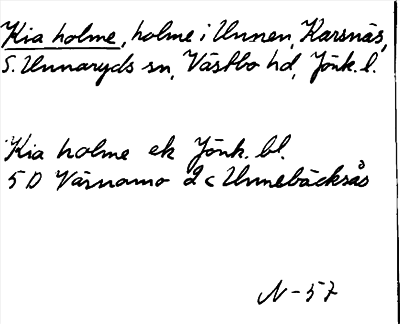 Kia holme, holme i Unnen, Karsnäs,
S. Unnaryds sn, Västbo hd, Jönk. l.
Kia holme ek Jönk. bl.
5 D Värnamo 2 c Unnebäcksås
N-57